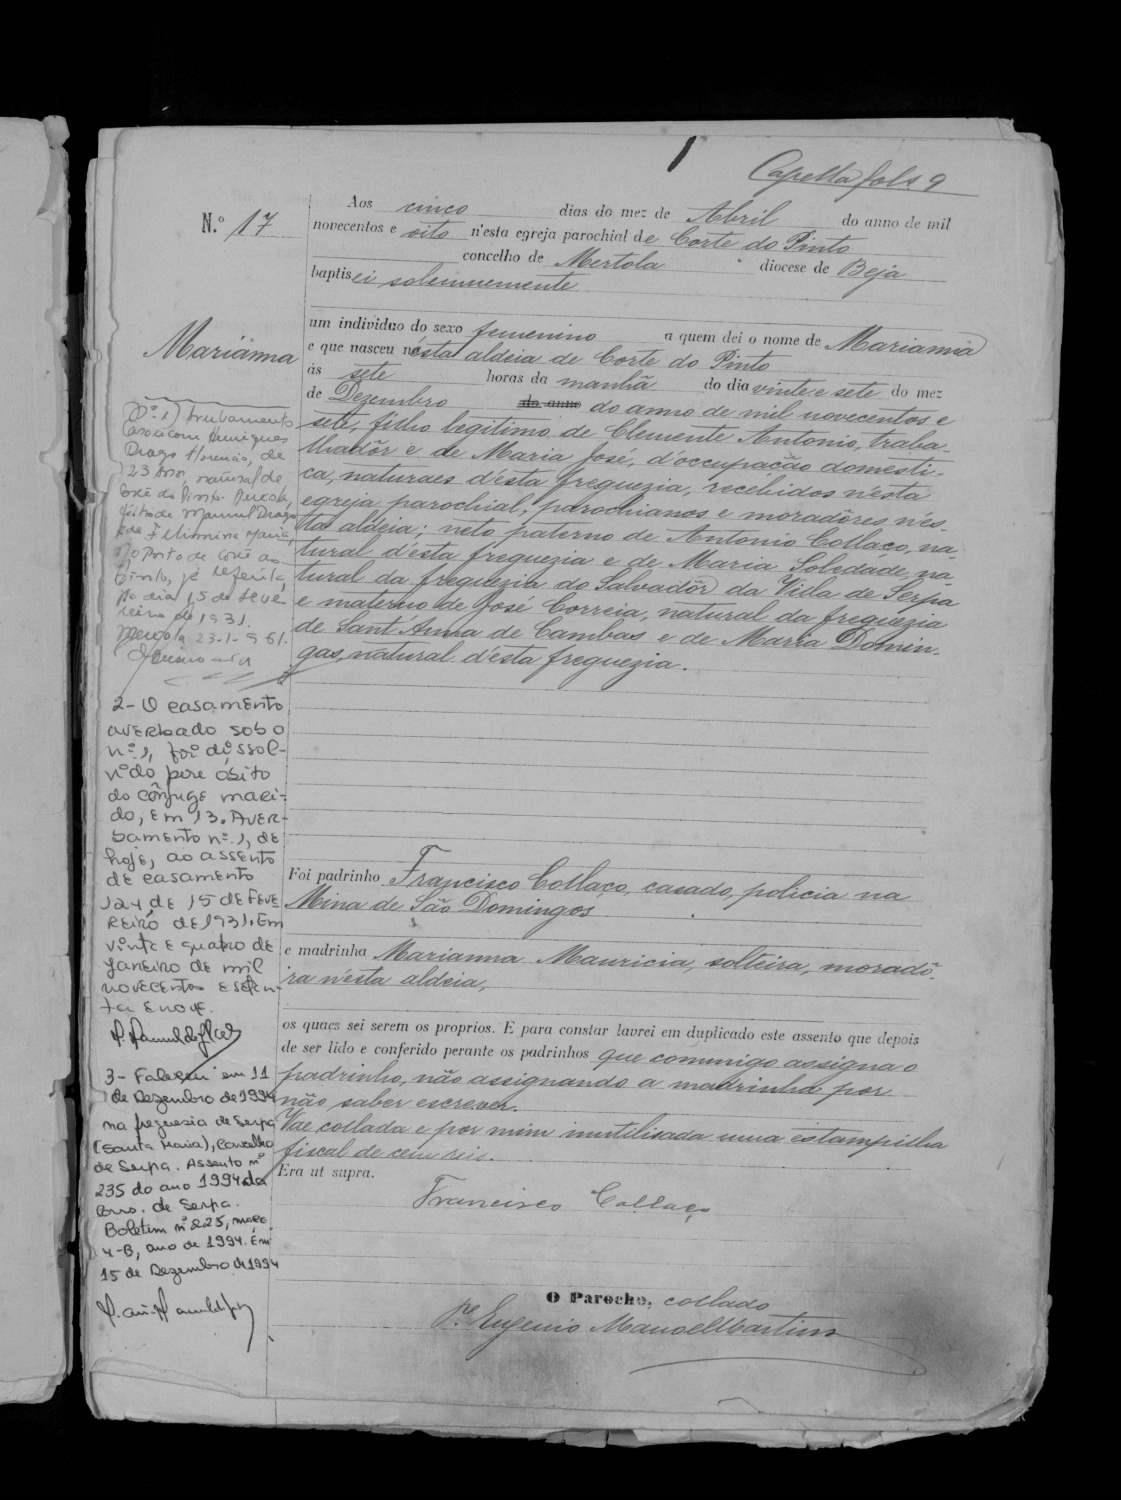 Capella fols 9
N.º 17
Aos cinco dias do mez de Abril do anno de mil
novecentos e oito n'esta egreja parochial de Corte do Pinto
concelho de Mertola diocese de Beja
baptisei solemnemente
um individuo do sexo femenino a quem dei o nome de Marianna
e que nasceu nésta aldeia de Corte do Pinto
ás sete horas da manhã do dia vinte e sete do mez
de Dezembro do anno do anno de mil novecentos e
sete, filho legitimo de Clemente Antonio, traba-
lhadôr e de Maria José, d'occupação domesti-
ca, naturaes d'ésta freguezia, recebidos n'ésta
egreja parochial, parochianos e moradôres n'és-
ta aldeia; neto paterno de Antonio Collaço, na-
tural d'ésta freguezia e de Maria Soledade, na-
tural da freguezia do Salvadôr da Villa de Serpa
e materno de José Correia, natural da freguezia
de Sant'Anna de Cambas e de Maria Domin-
gas, natural d'ésta freguezia.
Foi padrinho Francisco Collaço, casado, policia na
Mina de São Domingos
e madrinha Marianna Mauricia, solteira, moradô-
ra n'ésta aldeia,
os quaes sei serem os proprios. E para constar lavrei em duplicado este assento que depois
de ser lido e conferido perante os padrinhos que commigo assigna o
padrinho, não assignando a madrinha por
não saber escrever.
Vae collada e por mim inutilisada uma estampilha
fiscal de cem reis.
Era ut supra.
Francisco Collaço
O Parocho, collado
P.e Eugenio Manoel Martins
Marianna
Nº 1) Averbamento
Casou com Henriques
Drago Florencio, de
23 anos, natural de
Corte do Pinto. Mertola,
filho de Manuel Drago
e de Filismina Maria,
no Posto de Corte do
Pinto, já referida,
no dia 15 de Feve-
reiro de 1931.
Mertola 23-1-961.
2- O casamento
averbado sob o
nº 1, foi dissol-
vido por óbito
do cônjuge mari-
do, em 13. Aver-
bamento nº 1, de
hoje, ao assento
de casamento
124 de 15 de Feve
reiro de 1931. Em
vinte e quatro de
Janeiro de mil
novecentos e seten-
ta e nove.
3- Faleceu em 11
de Dezembro de 1994
na freguesia de Serpa
(Santa Maria), Concelho
de Serpa. Assento nº
235 do ano 1994 da
Cons. de Serpa.
Boletim nº 225, maço
4-B, ano de 1994. Em
15 de Dezembro de 1994